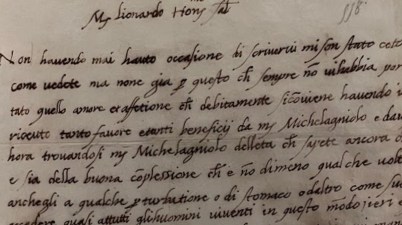 118
Mr lionardo
Non havendo mai hauto occasione di scriverui mi son stato
come vedete ma none gia p questo ch sempre nō vihabbia
tato quello amore et affetione ch debitamente si conviene havendo
riceuto tanto favore et anti beneficij da mr Michelagniolo e
hora trovandosi mr Michelagniolo delleta ch sapete ancora
e sia della buona cōplessione ch e nō dimeno qualche volt
anchegli a qualche pturbatione o di stomaco o daltro come
accedere quasi attutti glihuomini viventi in questo mōdo ieri